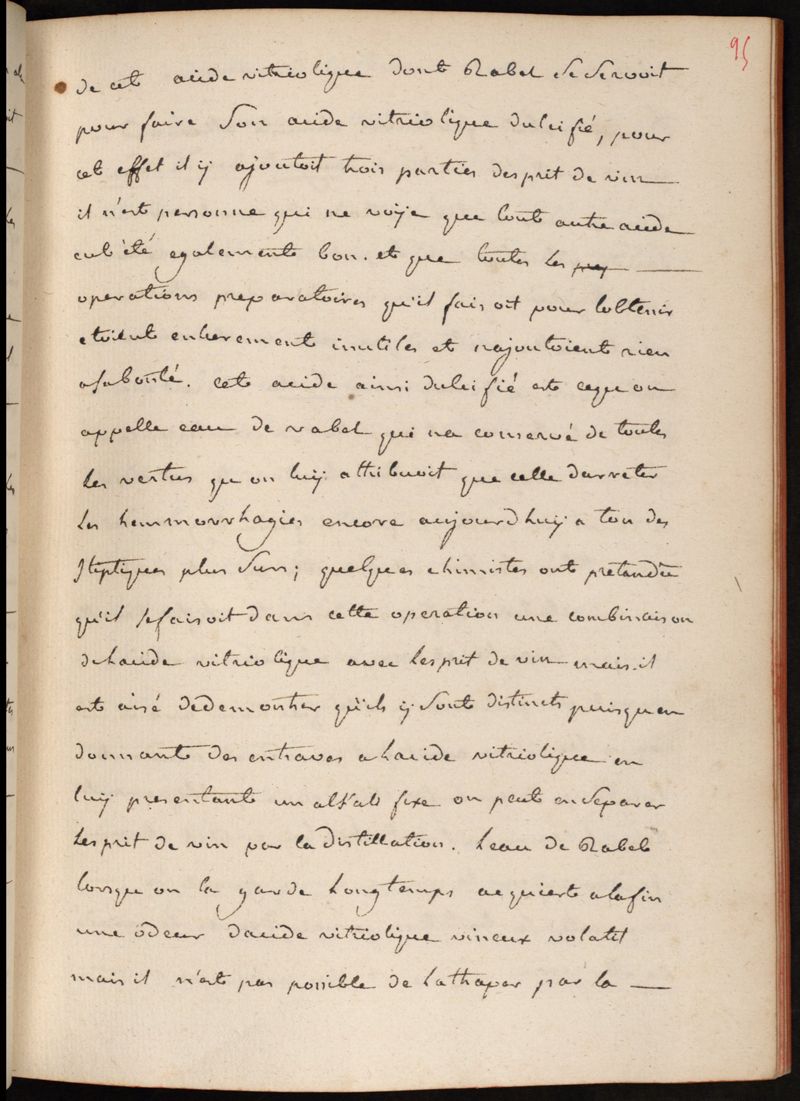 95
de cet acide vitriolique dont Rabel se servoit
pour faire son acide vitriolique dulcifié, pour
cet effet il ij ajoutoit trois parties desprit de vin
il n'est personne qui ne voije que tout autre acide
eut été egalement bon. et que toutes les
operations preparatoires qu'il faisoit pour lobtenir
etoient entierement inutiles et najoutoient rien
asabonté. cet acide ainsi dulcifié est cequon
appelle eau de rabel qui na conservé de toutes
les vertus quon luij attribuoit que celle darreter
les hemmorrhagies encore aujourdhuij a ton des
stiptiques plus surs; quelques chimistes ont pretandu
qu'il sefaisoit dans cette operation une combinaison
delacide vitriolique avec lesprit de vin mais il
est aisé dedemontrer qu'ils ij sont distincts puisquen
donnant des entraves alacide vitriolique en
luij presentant un alkali fixe on peut en separer
lesprit de vin par la distillation. leau de Rabel
lorsque on la garde longtemps acquiert alafin
une odeur dacide vitriolique vineux volatil
mais il n'est pas possible de lattraper par la